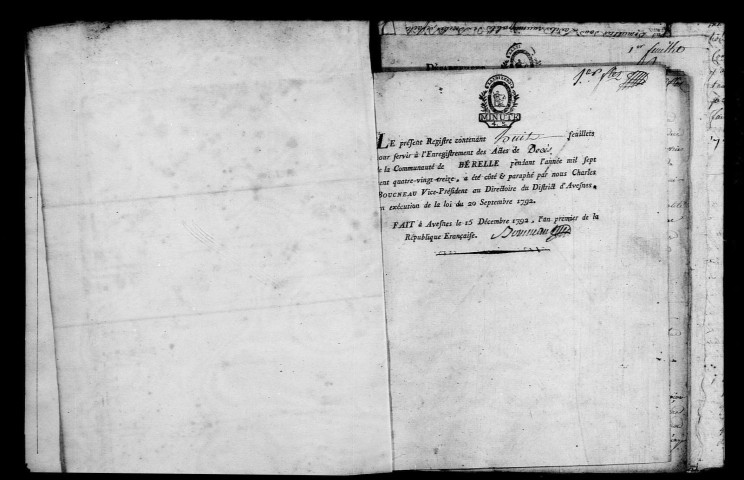 1er feuillet
1er fllet
MINUTE
4. S.
LE présent Registre contenant huit feuillets
our servir à l'Enregistrement des Actes de Decès
de la Communauté de BÉRELLE pendant l'année mil sept
ent quatre-vingt-treize, a été côté & paraphé par nous Charles
BOUCNEAU Vice-Président au Directoire du District d'Avesnes,
n exécution de la loi du 20 Septembre 1792.
FAIT à Avesnes le 15 Décembre 1792, l'an premier de la
République Française. Boucneau